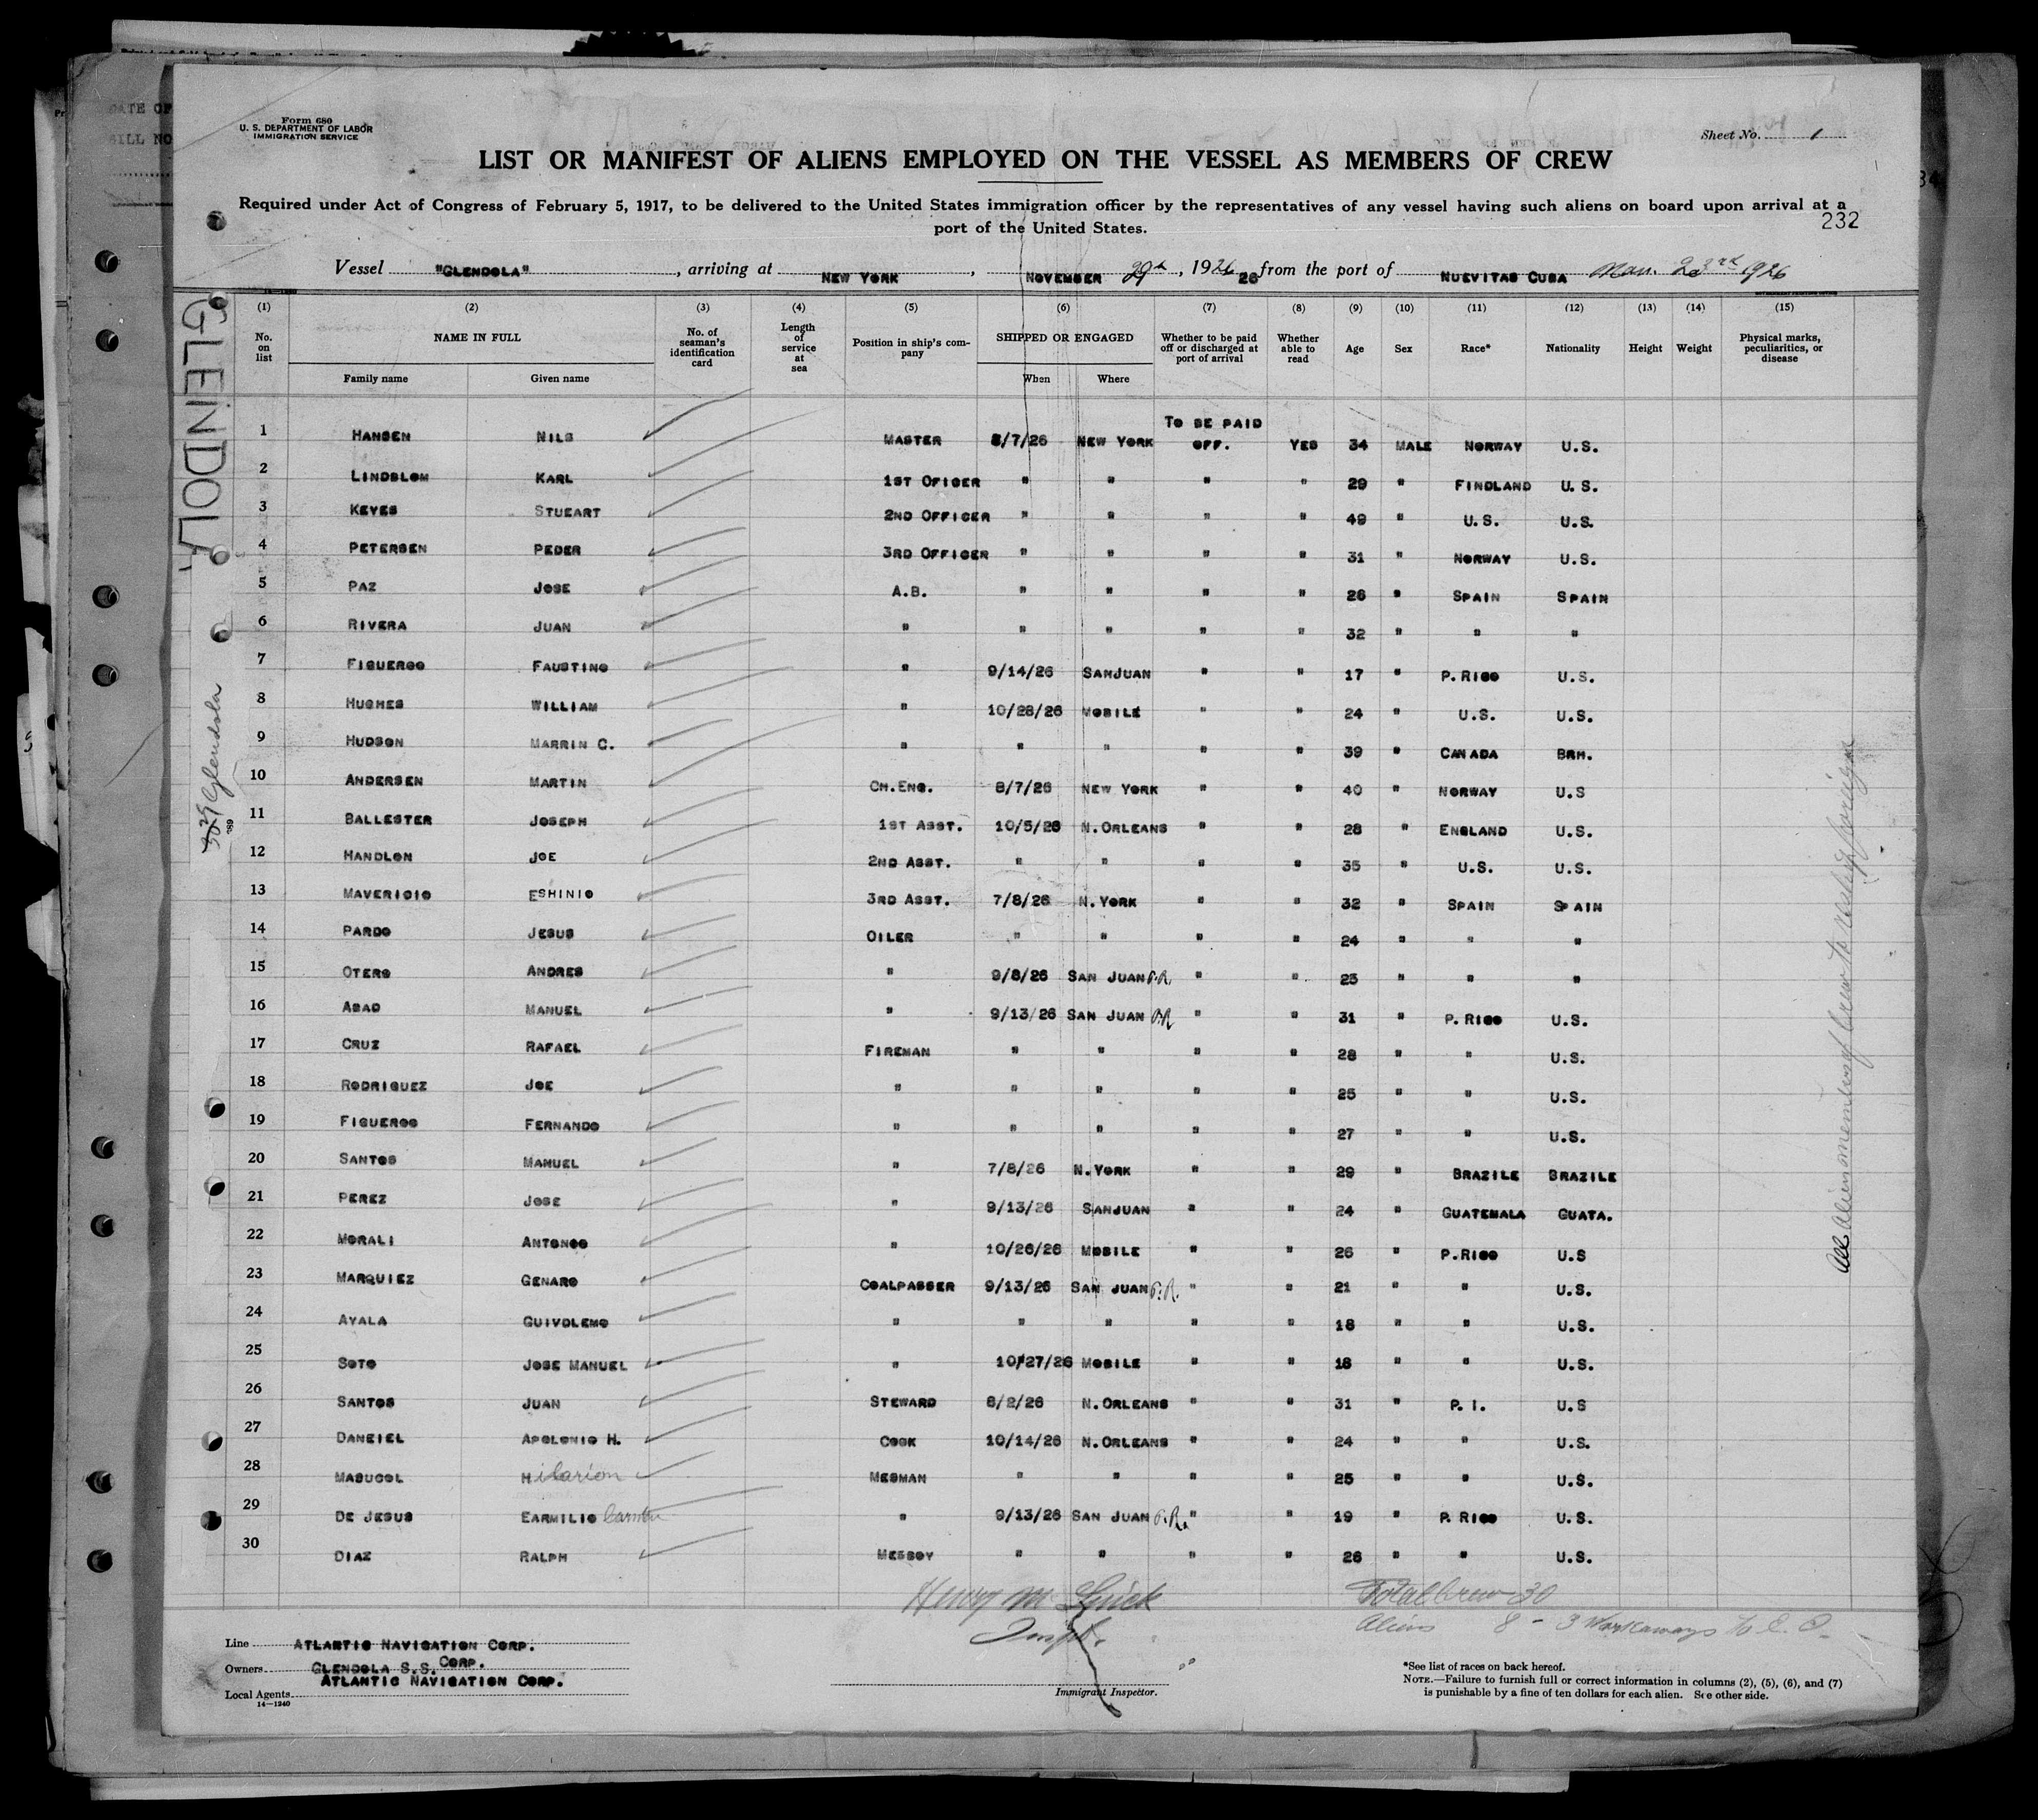 Form 680
U. S. DEPARTMENT OF LABOR
IMMIGRATION SERVICE
Sheet No. 1
LIST OR MANIFEST OF ALIENS EMPLOYED ON THE VESSEL AS MEMBERS OF CREW
Required under Act of Congress of February 5, 1917, to be delivered to the United States immigration officer by the representatives of any vessel having such aliens on board upon arrival at a
port of the United States.
232
Vessel "GLENDOLA", arriving at NEW YORK, NOVEMBER 29th, 1926 26 from the port of NUEVITAS CUBA Nov. 23rd 1926
(1) (2) (3) (4) (5) (6) (7) (8) (9) (10) (11) (12) (13) (14) (15)
No. on list NAME IN FULL No. of seaman's identification card Length of service at sea Position in ship's company SHIPPED OR ENGAGED Whether to be paid off or discharged at port of arrival Whether able to read Age Sex Race* Nationality Height Weight Physical marks, peculiarities, or disease
Family name Given name When Where
1 HANSEN NILS MASTER 8/7/26 NEW YORK TO BE PAID OFF. YES 34 MALE NORWAY U.S.
2 LINDBLOM KARL 1ST OFICER " " " " 29 " FINDLAND U.S.
3 KEYES STUEART 2ND OFFICER " " " " 49 " U.S. U.S.
4 PETERSEN PEDER 3RD OFFICER " " " " 31 " NORWAY U.S.
5 PAZ JOSE A.B. " " " " 26 " SPAIN SPAIN
6 RIVERA JUAN " " " " " 32 " " "
7 FIGUEROO FAUSTINO " 9/14/26 SANJUAN " " 17 " P.RICO U.S.
8 HUGHES WILLIAM " 10/28/26 MOBILE " " 24 " U.S. U.S.
9 HUDSON MARRIN C. " " " " " 39 " CANADA BRH.
10 ANDERSEN MARTIN CH.ENG. 8/7/26 NEW YORK " " 40 " NORWAY U.S
11 BALLESTER JOSEPH 1ST ASST. 10/5/26 N.ORLEANS " " 28 " ENGLAND U.S.
12 HANDLON JOE 2ND ASST. " " " " 35 " U.S. U.S.
13 MAVERICIO ESHINIO 3RD ASST. 7/8/26 N.YORK " " 32 " SPAIN SPAIN
14 PARDO JESUS OILER " " " " 24 " " "
15 OTERO ANDRES " 9/8/26 SAN JUAN P.R. " " 23 " " "
16 ABAD MANUEL " 9/13/26 SAN JUAN P.R " " 31 " P.RICO U.S.
17 CRUZ RAFAEL FIREMAN " " " " 28 " " U.S.
18 RODRIGUEZ JOE " " " " " 25 " " U.S.
19 FIGUEROO FERNANDO " " " " " 27 " " U.S.
20 SANTOS MANUEL " 7/8/26 N.YORK " " 29 " BRAZILE BRAZILE
21 PEREZ JOSE " 9/13/26 SANJUAN " " 24 " GUATEMALA GUATA.
22 MORALI ANTONOO " 10/26/26 MOBILE " " 26 " P.RICO U.S
23 MARQUIEZ GENARO COALPASSER 9/13/26 SAN JUAN P.R. " " 21 " " U.S.
24 AYALA GUIVOLEMO " " " " " 18 " " U.S.
25 SOTO JOSE MANUEL " 10/27/26 MOBILE " " 18 " " U.S.
26 SANTOS JUAN STEWARD 8/2/26 N.ORLEANS " " 31 " P.I. U.S
27 DANEIEL APOLONIO H. COOK 10/14/26 N.ORLEANS " " 24 " " U.S.
28 MABUCOL Hilarion MESMAN " " " " 25 " " U.S.
29 DE JESUS EARMILIO " 9/13/26 SAN JUAN P.R. " " 19 " P.RICO U.S.
30 DIAZ RALPH MESBOY " " " " 26 " " U.S.
GLENDOLA
Glendola
All alien members of crew to reship foreign
Total Crew - 30
Aliens 8 - 3 Workaways
Henry M.
Inspt.
Line ATLANTIC NAVIGATION CORP.
Owners GLENDOLA S.S. CORP.
Local Agents ATLANTIC NAVIGATION CORP.
14—1240
Immigrant Inspector.
*See list of races on back hereof.
NOTE.—Failure to furnish full or correct information in columns (2), (5), (6), and (7)
is punishable by a fine of ten dollars for each alien. See other side.